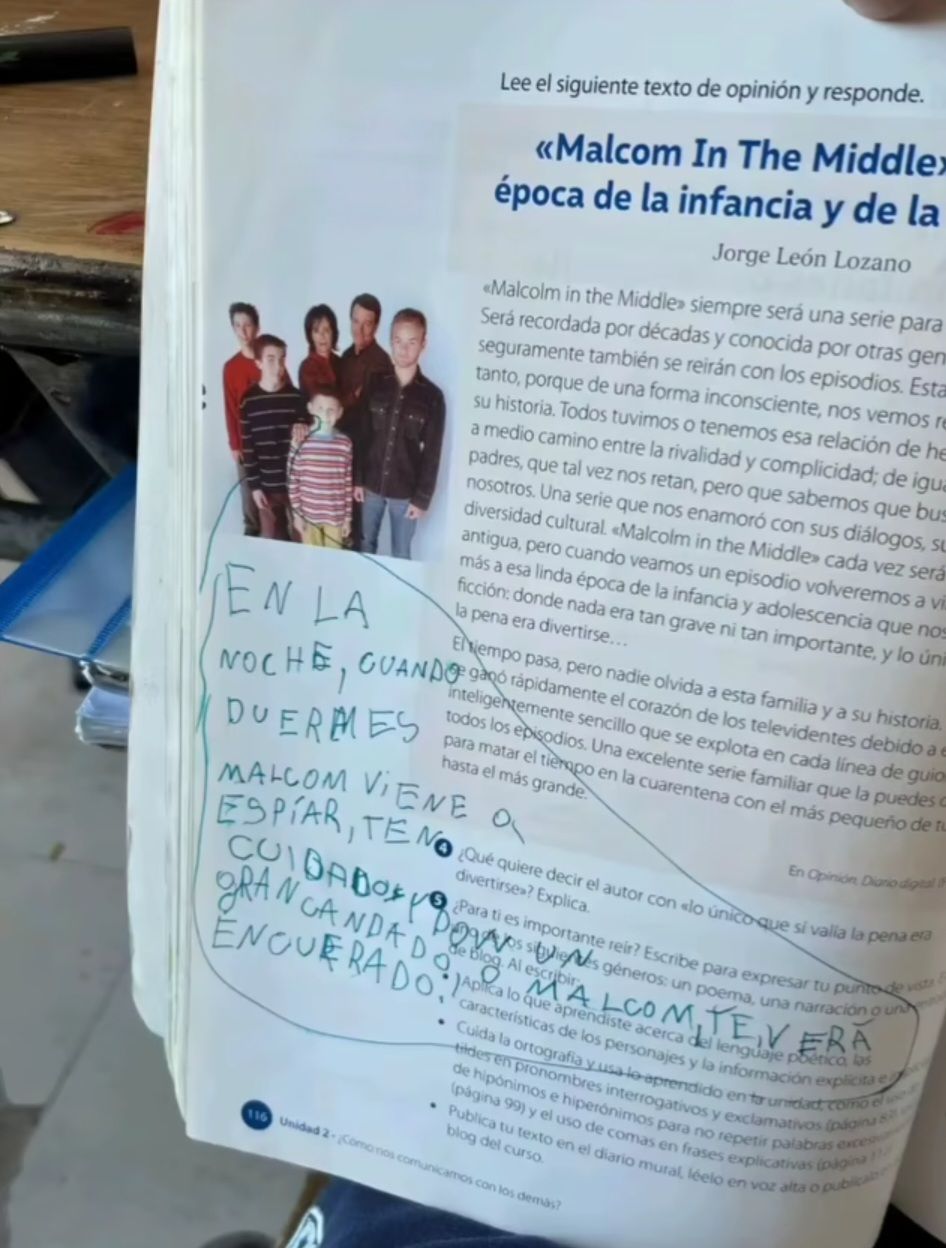 Lee el siguiente texto de opinión y responde.
«Malcom In The Middle»
época de la infancia y de la
Jorge León Lozano
«Malcolm in the Middle» siempre será una serie para
Será recordada por décadas y conocida por otras gen
seguramente también se reirán con los episodios. Esta
tanto, porque de una forma inconsciente, nos vemos re
su historia. Todos tuvimos o tenemos esa relación de he
a medio camino entre la rivalidad y complicidad; de igua
padres, que tal vez nos retan, pero que sabemos que bus
nosotros. Una serie que nos enamoró con sus diálogos, su
diversidad cultural. «Malcolm in the Middle» cada vez será
antigua, pero cuando veamos un episodio volveremos a vi
más a esa linda época de la infancia y adolescencia que nos
ficción: donde nada era tan grave ni tan importante, y lo úni
la pena era divertirse…
El tiempo pasa, pero nadie olvida a esta familia y a su historia.
se ganó rápidamente el corazón de los televidentes debido a e
inteligentemente sencillo que se explota en cada línea de guio
todos los episodios. Una excelente serie familiar que la puedes
para matar el tiempo en la cuarentena con el más pequeño de tu
hasta el más grande.
En Opinión, Diario digital
EN LA
NOCHE, CUANDO
DUERMES
MALCOM ViENE a
ESPíAR, TEN
CUIDADO, Y PON UN
GRAN CANDADO O MALCOM, TE, VERÁ
ENCUERADO.!
4 ¿Qué quiere decir el autor con «lo único que sí valía la pena era
divertirse»? Explica.
5 ¿Para ti es importante reír? Escribe para expresar tu punto de vista
los siguientes géneros: un poema, una narración o una
de blog. Al escribir:
• Aplica lo que aprendiste acerca del lenguaje poético, las
características de los personajes y la información explícita e
• Cuida la ortografía y usa lo aprendido en la unidad, como el
tildes en pronombres interrogativos y exclamativos (página
de hipónimos e hiperónimos para no repetir palabras
(página 99) y el uso de comas en frases explicativas (página
• Publica tu texto en el diario mural, léelo en voz alta o publícalo
blog del curso.
116 Unidad 2 - ¿Cómo nos comunicamos con los demás?